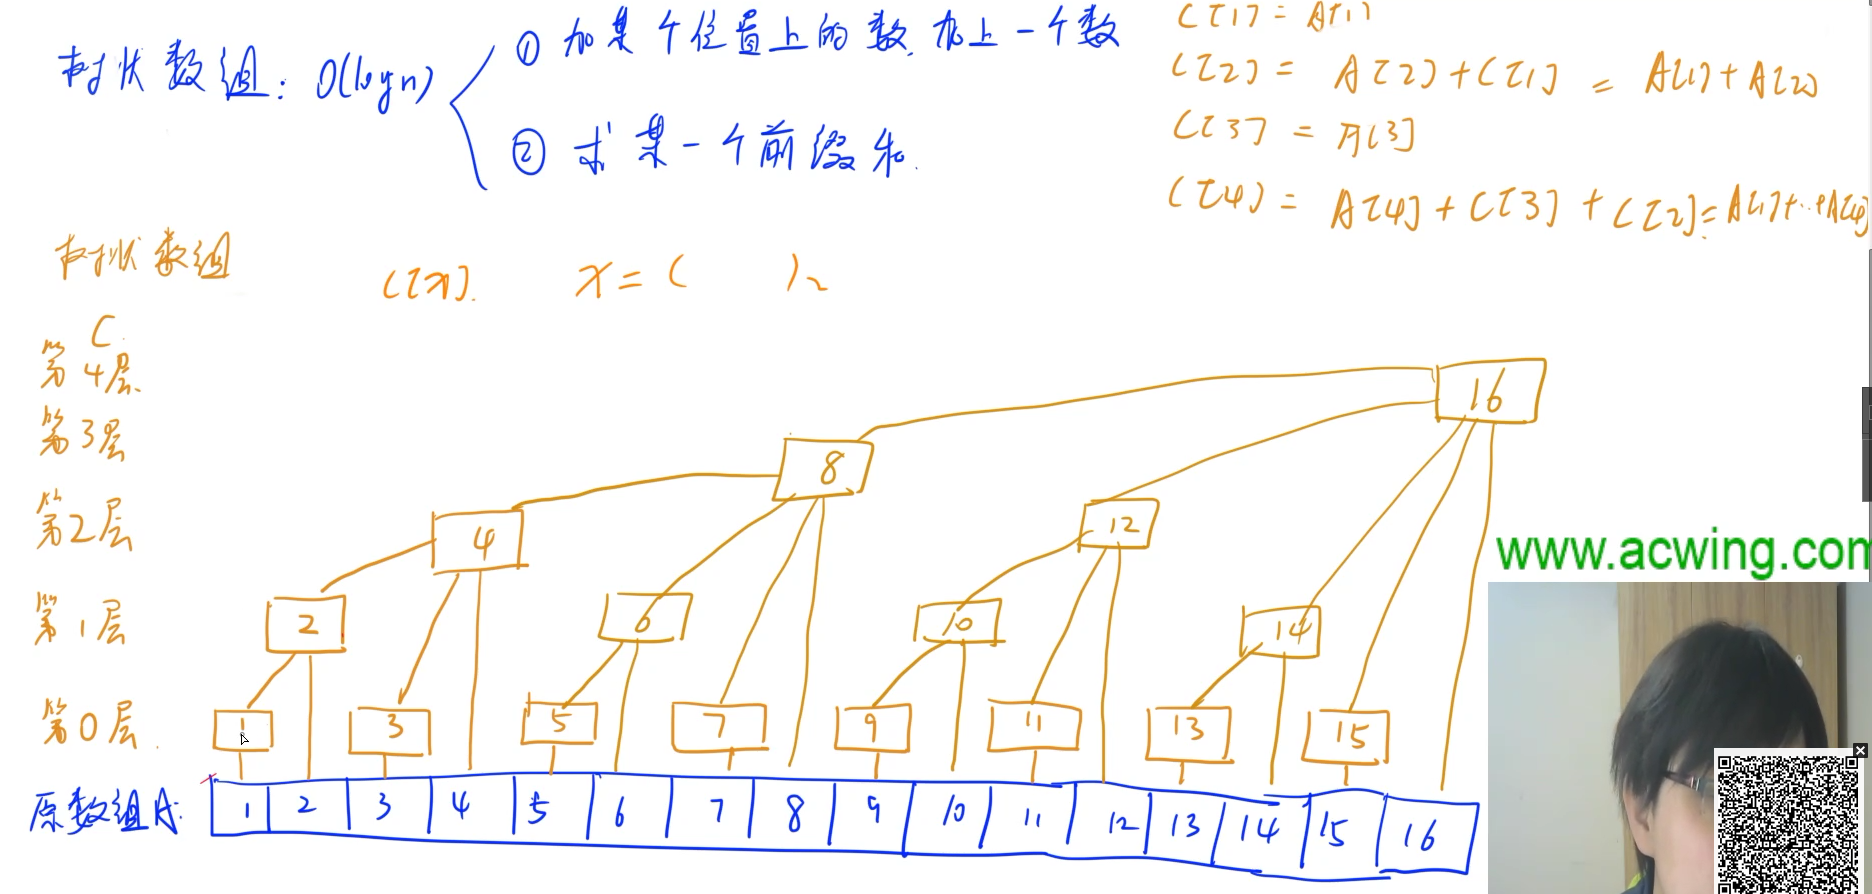 树状数组: O(logn)
① 加某个位置上的数, 加上一个数
② 求某一个前缀和.
C[1] = A[1]
C[2] = A[2] + C[1] = A[1] + A[2]
C[3] = A[3]
C[4] = A[4] + C[3] + C[2] = A[1] + .. + A[4]
树状数组 C[x]. x = ( )₂
C
第4层
16
第3层
8
第2层
4 12
第1层
2 6 10 14
第0层.
1 3 5 7 9 11 13 15
原数组A:
1 2 3 4 5 6 7 8 9 10 11 12 13 14 15 16
www.acwing.com